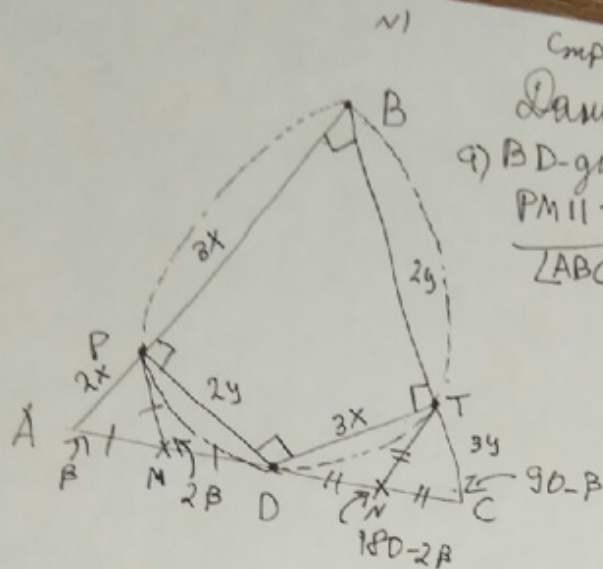 N1
Стр
Дан
B
а) BD-д
PM ||
∠ABC
3x
2y
P
2x
2y
3x
T
A
3y
β
M
2β
D
N
C
90-β
180-2β